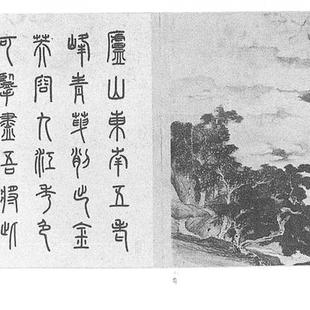 廬山東南五老
峰青天削出金
芙容九江秀色
可擥盡吾將此